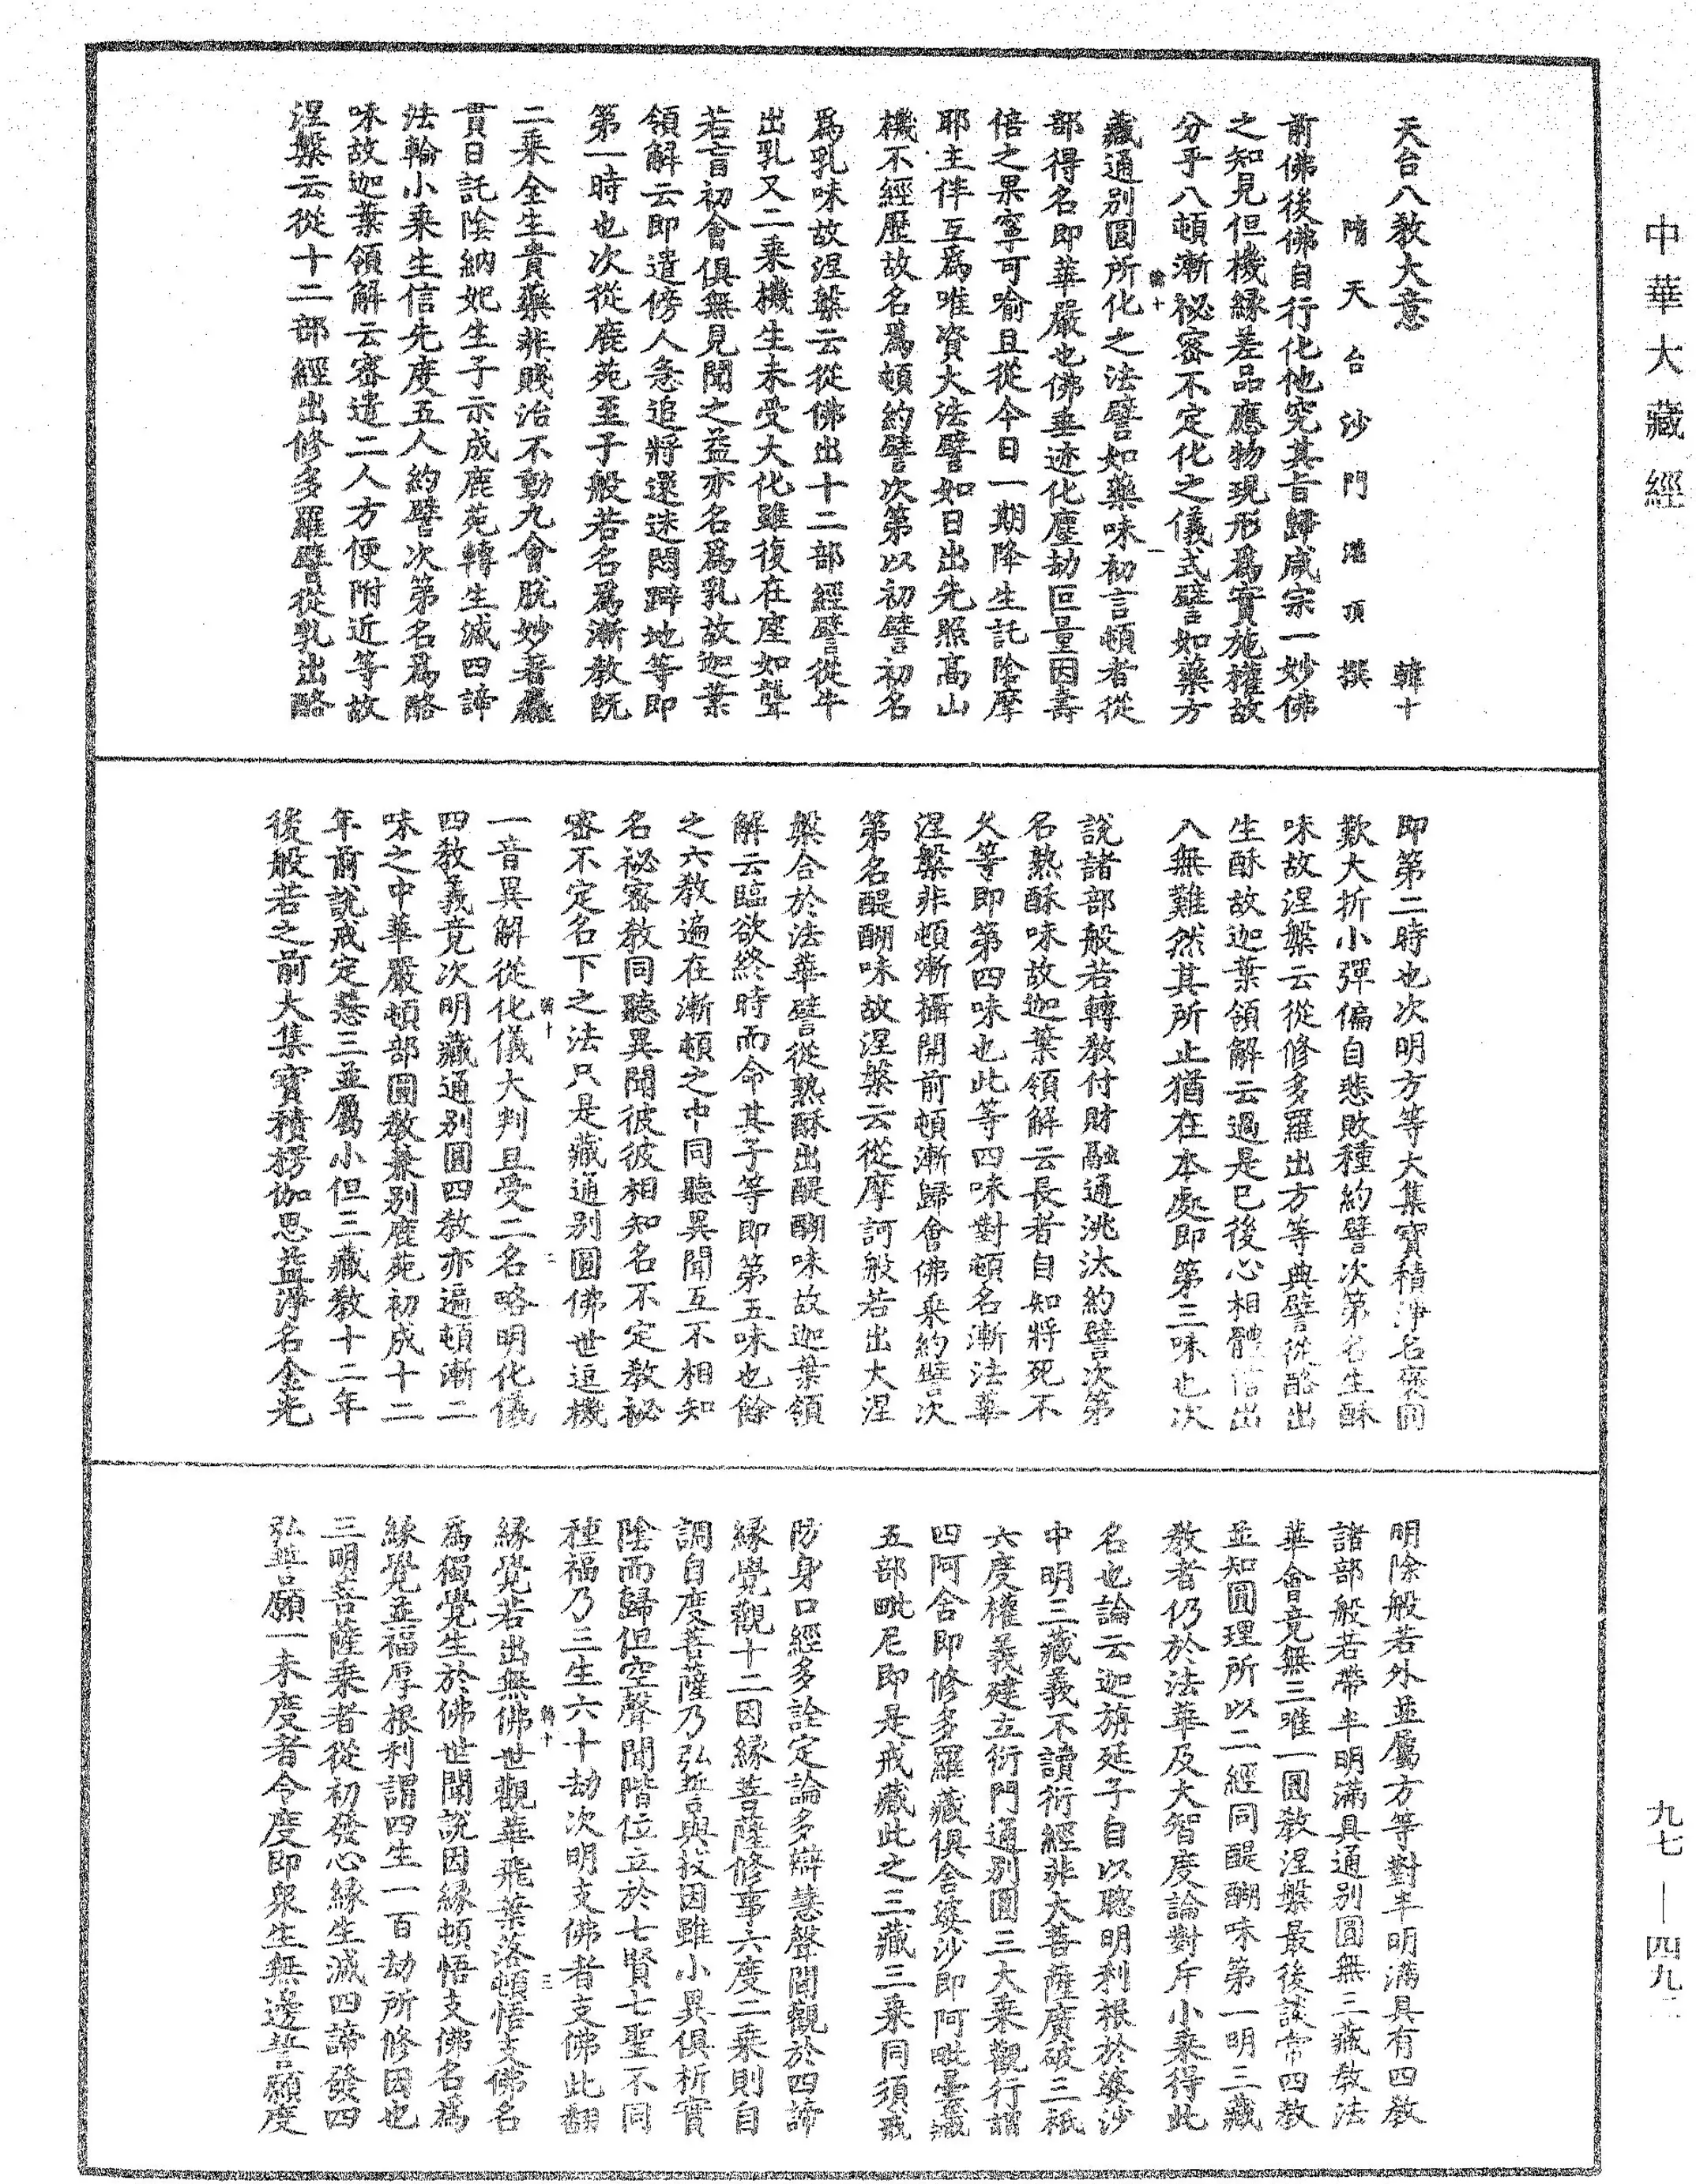 中華大藏經
天台八教大意　韓十
隋天台沙門灌頂撰
前佛後佛自行化他究其旨歸咸宗一妙佛
之知見但機緣差品應物現形爲實施權故
分乎八頓漸祕密不定化之儀式譬如藥方
藏通別圓所化之法譬如藥味初言頓者從
部得名即華嚴也佛垂迹化塵劫叵量因壽
倍之果寧可喻且從今日一期降生託陰摩
耶主伴互爲唯資大法譬如日出先照高山
機不經歷故名爲頓約譬次第以初譬初名
爲乳味故涅槃云從佛出十二部經譬從牛
出乳又二乘機生未受大化雖復在座如聾
若盲初會俱無見聞之益亦名爲乳故迦葉
領解云即遣傍人急追將還迷悶躃地等即
第一時也次從鹿苑至于般若名爲漸教既
二乘全生貴藥非賤治不動九會脫妙著麤
貫日託陰納妃生子示成鹿苑轉生滅四諦
法輪小乘生信先度五人約譬次第名爲酪
味故迦葉領解云密遣二人方便附近等故
涅槃云從十二部經出修多羅譬從乳出酪
即第二時也次明方等大集寶積淨名褒圓
歎大折小彈偏自悲敗種約譬次第名生酥
味故涅槃云從修多羅出方等典譬從酪出
生酥故迦葉領解云過是已後心相體信出
入無難然其所止猶在本處即第三味也次
說諸部般若轉教付財融通洮汰約譬次第
名熟酥味故迦葉領解云長者自知將死不
久等即第四味也此等四味對頓名漸法華
涅槃非頓漸攝開前頓漸歸會佛乘約譬次
第名醍醐味故涅槃云從摩訶般若出大涅
槃合於法華譬從熟酥出醍醐味故迦葉領
解云臨欲終時而命其子等即第五味也餘
之六教遍在漸頓之中同聽異聞互不相知
名祕密教同聽異聞彼彼相知名不定教祕
密不定名下之法只是藏通別圓佛世逗機
一音異解從化儀大判且受二名略明化儀
四教義竟次明藏通別圓四教亦遍頓漸二
味之中華嚴頓部圓教兼別鹿苑初成十二
年前說戒定慧三並屬小但三藏教十二年
後般若之前大集寶積楞伽思益淨名金光
明除般若外並屬方等對半明滿具有四教
諸部般若帶半明滿具通別圓無三藏教法
華會竟無三唯一圓教涅槃最後談常四教
並知圓理所以二經同醍醐味第一明三藏
教者仍於法華及大智度論對斥小乘得此
名也論云迦旃延子自以聰明利根於婆沙
中明三藏義不讀衍經非大菩薩廣破三祇
六度權義建立衍門通別圓三大乘觀行謂
四阿含即修多羅藏俱舍婆沙即阿毗曇藏
五部毗尼即是戒藏此之三藏三乘同須戒
防身口經多詮定論多辯慧聲聞觀於四諦
緣覺觀十二因緣菩薩修事六度二乘則自
調自度菩薩乃弘誓與拔因雖小異俱析實
陰而歸但空聲聞階位立於七賢七聖不同
種福乃三生六十劫次明支佛者支佛此翻
緣覺若出無佛世觀華飛葉落頓悟支佛名
爲獨覺生於佛世聞說因緣頓悟支佛名爲
緣覺並福厚根利謂四生一百劫所修因也
三明菩薩乘者從初發心緣生滅四諦發四
弘誓願一未度者令度即眾生無邊誓願度
九七—四九二